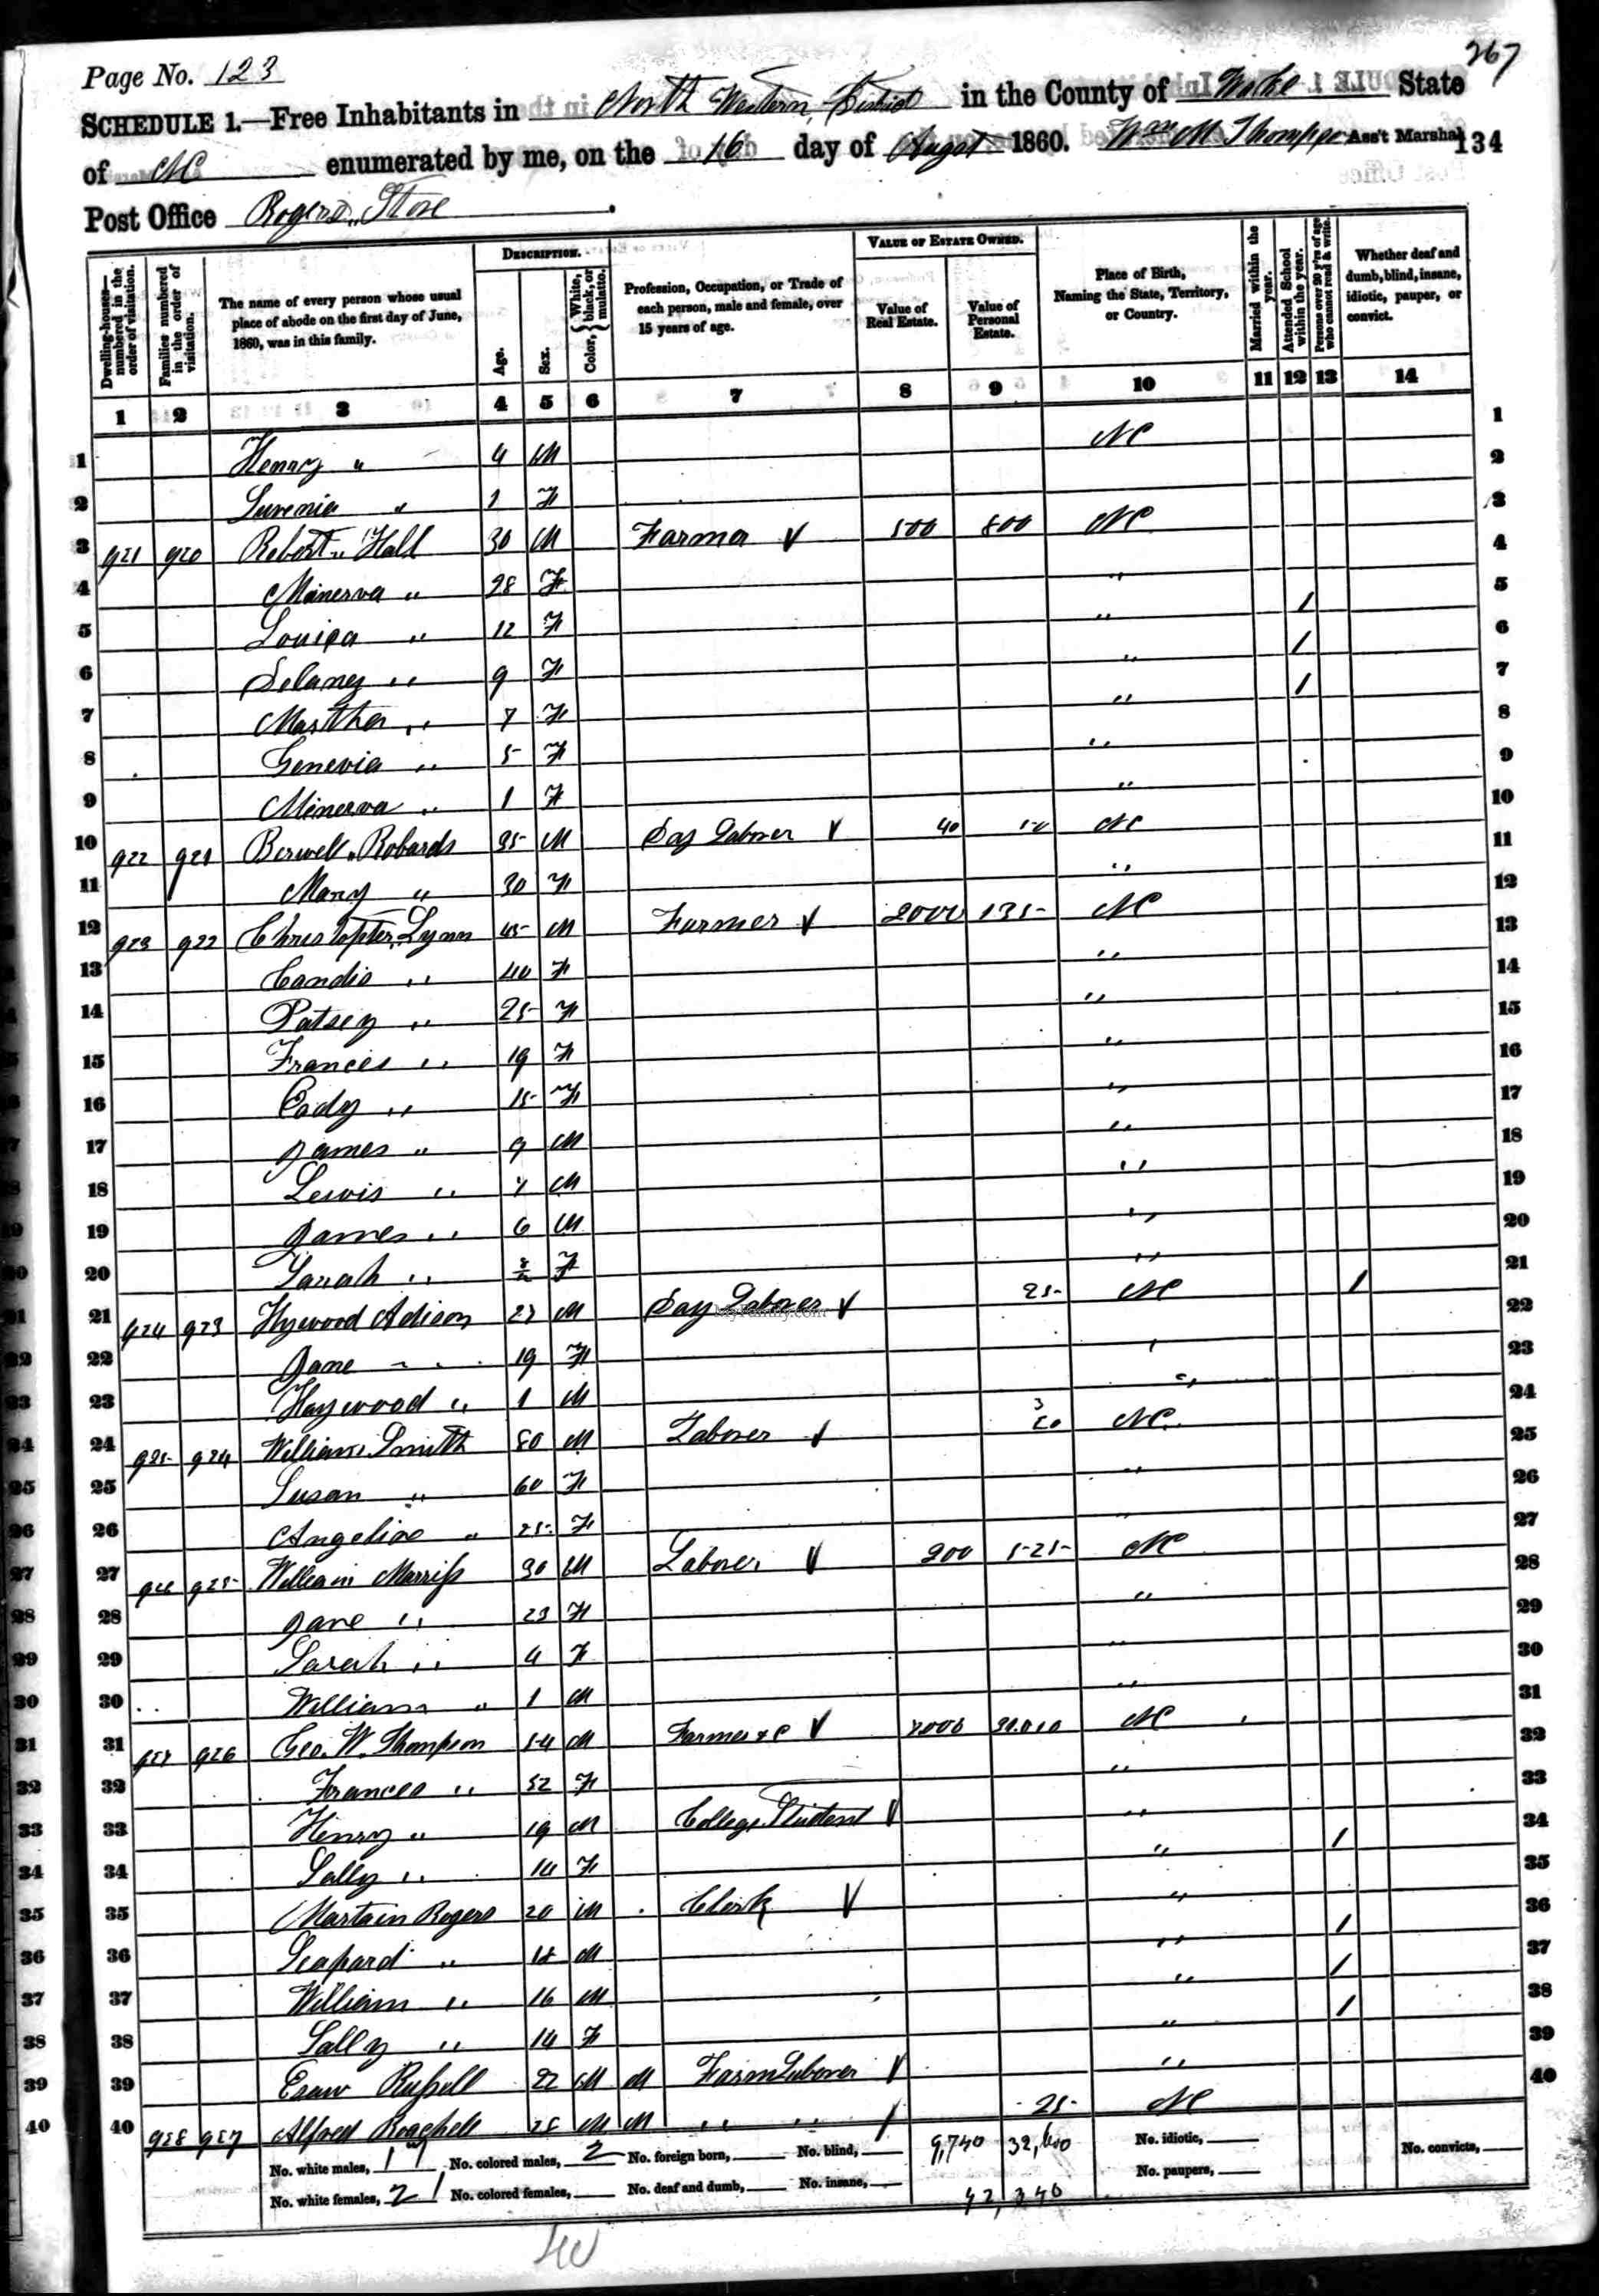 267
Page No. 123
SCHEDULE 1.—Free Inhabitants in North Western District in the County of Wake State
of NC enumerated by me, on the 16 day of August 1860. Wm M Thompson Ass't Marshal
134
Post Office Rogers Store
Dwelling-houses—numbered in the order of visitation.
Families numbered in the order of visitation.
The name of every person whose usual place of abode on the first day of June, 1860, was in this family.
DESCRIPTION.
Age.
Sex.
Color, { White, black, or mulatto.
Profession, Occupation, or Trade of each person, male and female, over 15 years of age.
VALUE OF ESTATE OWNED.
Value of Real Estate.
Value of Personal Estate.
Place of Birth, Naming the State, Territory, or Country.
Married within the year.
Attended School within the year.
Persons over 20 y'rs of age who cannot read & write.
Whether deaf and dumb, blind, insane, idiotic, pauper, or convict.
1 2 3 4 5 6 7 8 9 10 11 12 13 14
1 Henry " 4 M NC 1
2 Luvenia " 1 F 2
3 921 920 Robert Hall 30 M Farmer 500 800 NC 3
4 Minerva " 28 F " 4
5 Louisa " 12 F " / 5
6 Delaney " 9 F " / 6
7 Martha " 7 F " / 7
8 Genevia " 5 F " 8
9 Minerva " 1 F " 9
10 922 921 Berwell Robards 35 M Day Laborer 40 50 NC 10
11 Mary " 30 F " 11
12 923 922 Christopher Lynn 45 M Farmer 2000 135 NC 12
13 Candis " 40 F " 13
14 Patsey " 25 F " 14
15 Frances " 19 F " 15
16 Cady " 15 F " 16
17 James " 9 M " 17
18 Lewis " 7 M " 18
19 James " 6 M " 19
20 Sarah " F " 20
21 924 923 Hywood Adison 27 M Day Laborer 25 NC / 21
MyFamily.com
22 Jane " 19 F " 22
23 Haywood " 1 M " 23
24 925 924 William Smith 80 M Laborer NC 24
25 Susan " 60 F " 25
26 Angeline " 25 F " 26
27 926 925 William Marriss 30 M Laborer 200 525 NC 27
28 Jane " 23 F " 28
29 Sarah " 4 F " 29
30 William " 1 M " 30
31 927 926 Geo. W. Thompson 54 M Farmer &c 7000 NC 31
32 Frances " 52 F " 32
33 Henry " 19 M College Student " / 33
34 Sally " 14 F " 34
35 Martain Rogers 20 M Clerk " 35
36 " 18 M " / 36
37 William " 16 M " / 37
38 Sally " 14 F " / 38
39 Esaw Russell 22 M M Farm Laborer " 39
40 928 927 Alfred 25 M M " " 25 NC 40
No. white males, 17 No. colored males, 2 No. foreign born, No. blind, 9,740 32,600 No. idiotic, No. convicts,
No. white females, 21 No. colored females, No. deaf and dumb, No. insane, No. paupers,
42,340